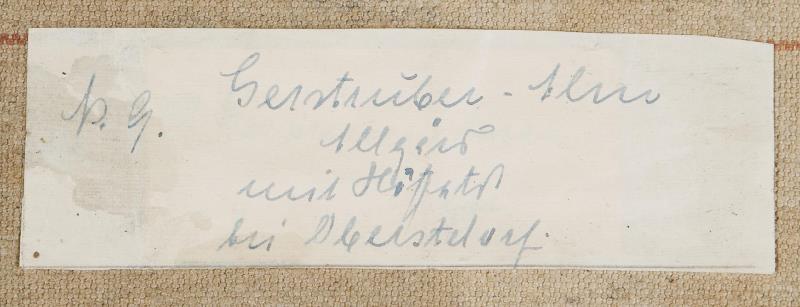 N. G. Gerstruber - Alm
Allgäu
mit Höfats
bei Oberstdorf.